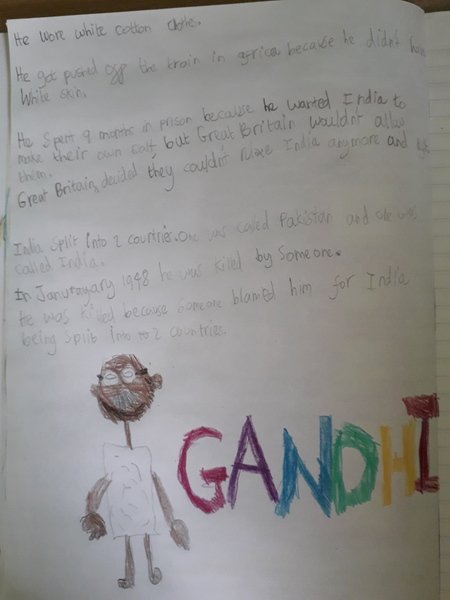 He wore white cotton clothes.
He got pushed off the train in africa because he didn't have
White skin.
He spent 9 months in prison because he wanted India to
make their own salt, but Great Britain wouldn't allow
them.
Great Britain, decided they couldn't rulee India anymore and
India split into 2 countries. One was called Pakistan and one was
called India.
In Januraway 1948 he was killed by someone.
He was killed because someone blamed him for India
being split into to 2 countries.
GANDHI